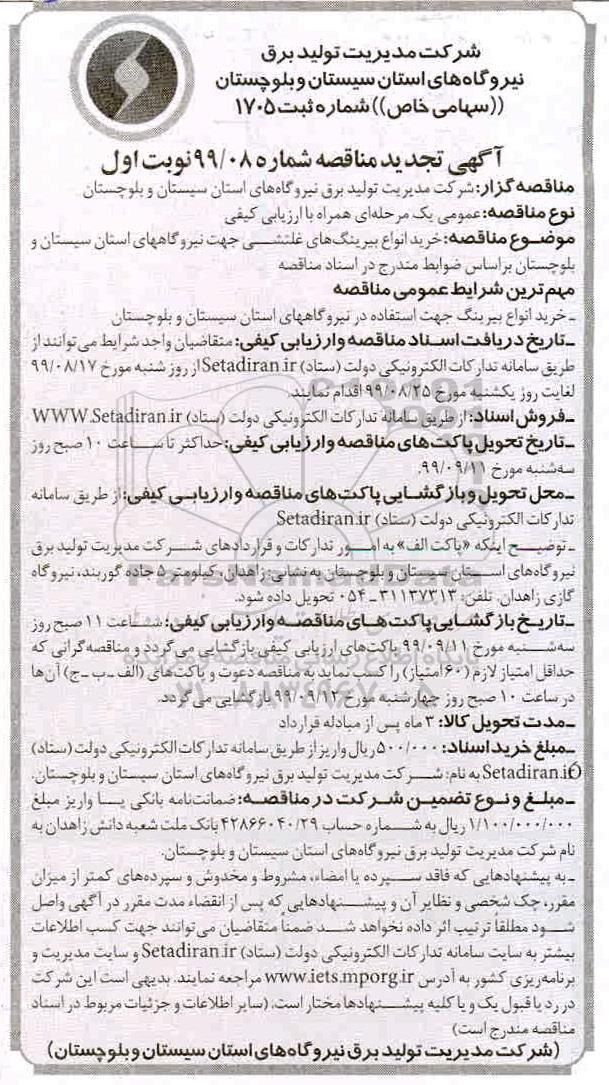 شرکت مدیریت تولید برق
نیروگاه‌های استان سیستان و بلوچستان
((سهامی خاص)) شماره ثبت ۱۷۰۵
آگهی تجدید مناقصه شماره ۹۹/۰۸ نوبت اول
مناقصه گزار: شرکت مدیریت تولید برق نیروگاه‌های استان سیستان و بلوچستان
نوع مناقصه: عمومی یک مرحله‌ای همراه با ارزیابی کیفی
موضوع مناقصه: خرید انواع بیرینگ‌های غلتشی جهت نیروگاههای استان سیستان و
بلوچستان براساس ضوابط مندرج در اسناد مناقصه
مهم‌ترین شرایط عمومی مناقصه
ـ خرید انواع بیرینگ جهت استفاده در نیروگاههای استان سیستان و بلوچستان
ـ تاریخ دریافت اسناد مناقصه و ارزیابی کیفی: متقاضیان واجد شرایط می‌توانند از
طریق سامانه تدارکات الکترونیکی دولت (ستاد) Setadiran.ir از روز شنبه مورخ ۹۹/۰۸/۱۷
لغایت روز یکشنبه مورخ ۹۹/۰۸/۲۵ اقدام نمایند.
ـ فروش اسناد: از طریق سامانه تدارکات الکترونیکی دولت (ستاد) WWW.Setadiran.ir
ـ تاریخ تحویل پاکت‌های مناقصه و ارزیابی کیفی: حداکثر تا ساعت ۱۰ صبح روز
سه‌شنبه مورخ ۹۹/۰۹/۱۱.
ـ محل تحویل و بازگشایی پاکت‌های مناقصه و ارزیابی کیفی: از طریق سامانه
تدارکات الکترونیکی دولت (ستاد) Setadiran.ir
ـ توضیح اینکه «پاکت الف» به امور تدارکات و قراردادهای شرکت مدیریت تولید برق
نیروگاه‌های استان سیستان و بلوچستان به نشانی: زاهدان، کیلومتر ۵ جاده گوربند، نیروگاه
گازی زاهدان. تلفن: ۳۱۱۳۷۳۱۳ ـ ۰۵۴ تحویل داده شود.
ـ تاریخ بازگشایی پاکت‌های مناقصه و ارزیابی کیفی: ساعت ۱۱ صبح روز
سه‌شنبه مورخ ۹۹/۰۹/۱۱ پاکت‌های ارزیابی کیفی بازگشایی می‌گردد و مناقصه‌گرانی که
حداقل امتیاز لازم (۶۰ امتیاز) را کسب نماید به مناقصه دعوت و پاکت‌های (الف ـ ب ـ ج) آن‌ها
در ساعت ۱۰ صبح روز چهارشنبه مورخ ۹۹/۰۹/۱۲ بازگشایی می‌گردد.
ـ مدت تحویل کالا: ۳ ماه پس از مبادله قرارداد
ـ مبلغ خرید اسناد: ۵۰۰/۰۰۰ ریال واریز از طریق سامانه تدارکات الکترونیکی دولت (ستاد)
Setadiran.ir به نام: شرکت مدیریت تولید برق نیروگاه‌های استان سیستان و بلوچستان.
ـ مبلغ و نوع تضمین شرکت در مناقصه: ضمانت‌نامه بانکی یا واریز مبلغ
۱/۱۰۰/۰۰۰/۰۰۰ ریال به شماره حساب ۴۲۸۶۶۰۴۰/۲۹ بانک ملت شعبه دانش زاهدان به
نام شرکت مدیریت تولید برق نیروگاه‌های استان سیستان و بلوچستان.
ـ به پیشنهادهایی که فاقد سپرده یا امضاء، مشروط و مخدوش و سپرده‌های کمتر از میزان
مقرر، چک شخصی و نظایر آن و پیشنهادهایی که پس از انقضاء مدت مقرر در آگهی واصل
شود مطلقاً ترتیب اثر داده نخواهد شد ضمناً متقاضیان می‌توانند جهت کسب اطلاعات
بیشتر به سایت سامانه تدارکات الکترونیکی دولت (ستاد) Setadiran.ir و سایت مدیریت و
برنامه‌ریزی کشور به آدرس www.iets.mporg.ir مراجعه نمایند. بدیهی است این شرکت
در رد یا قبول یک و یا کلیه پیشنهادها مختار است. (سایر اطلاعات و جزئیات مربوط در اسناد
مناقصه مندرج است)
(شرکت مدیریت تولید برق نیروگاه‌های استان سیستان و بلوچستان)